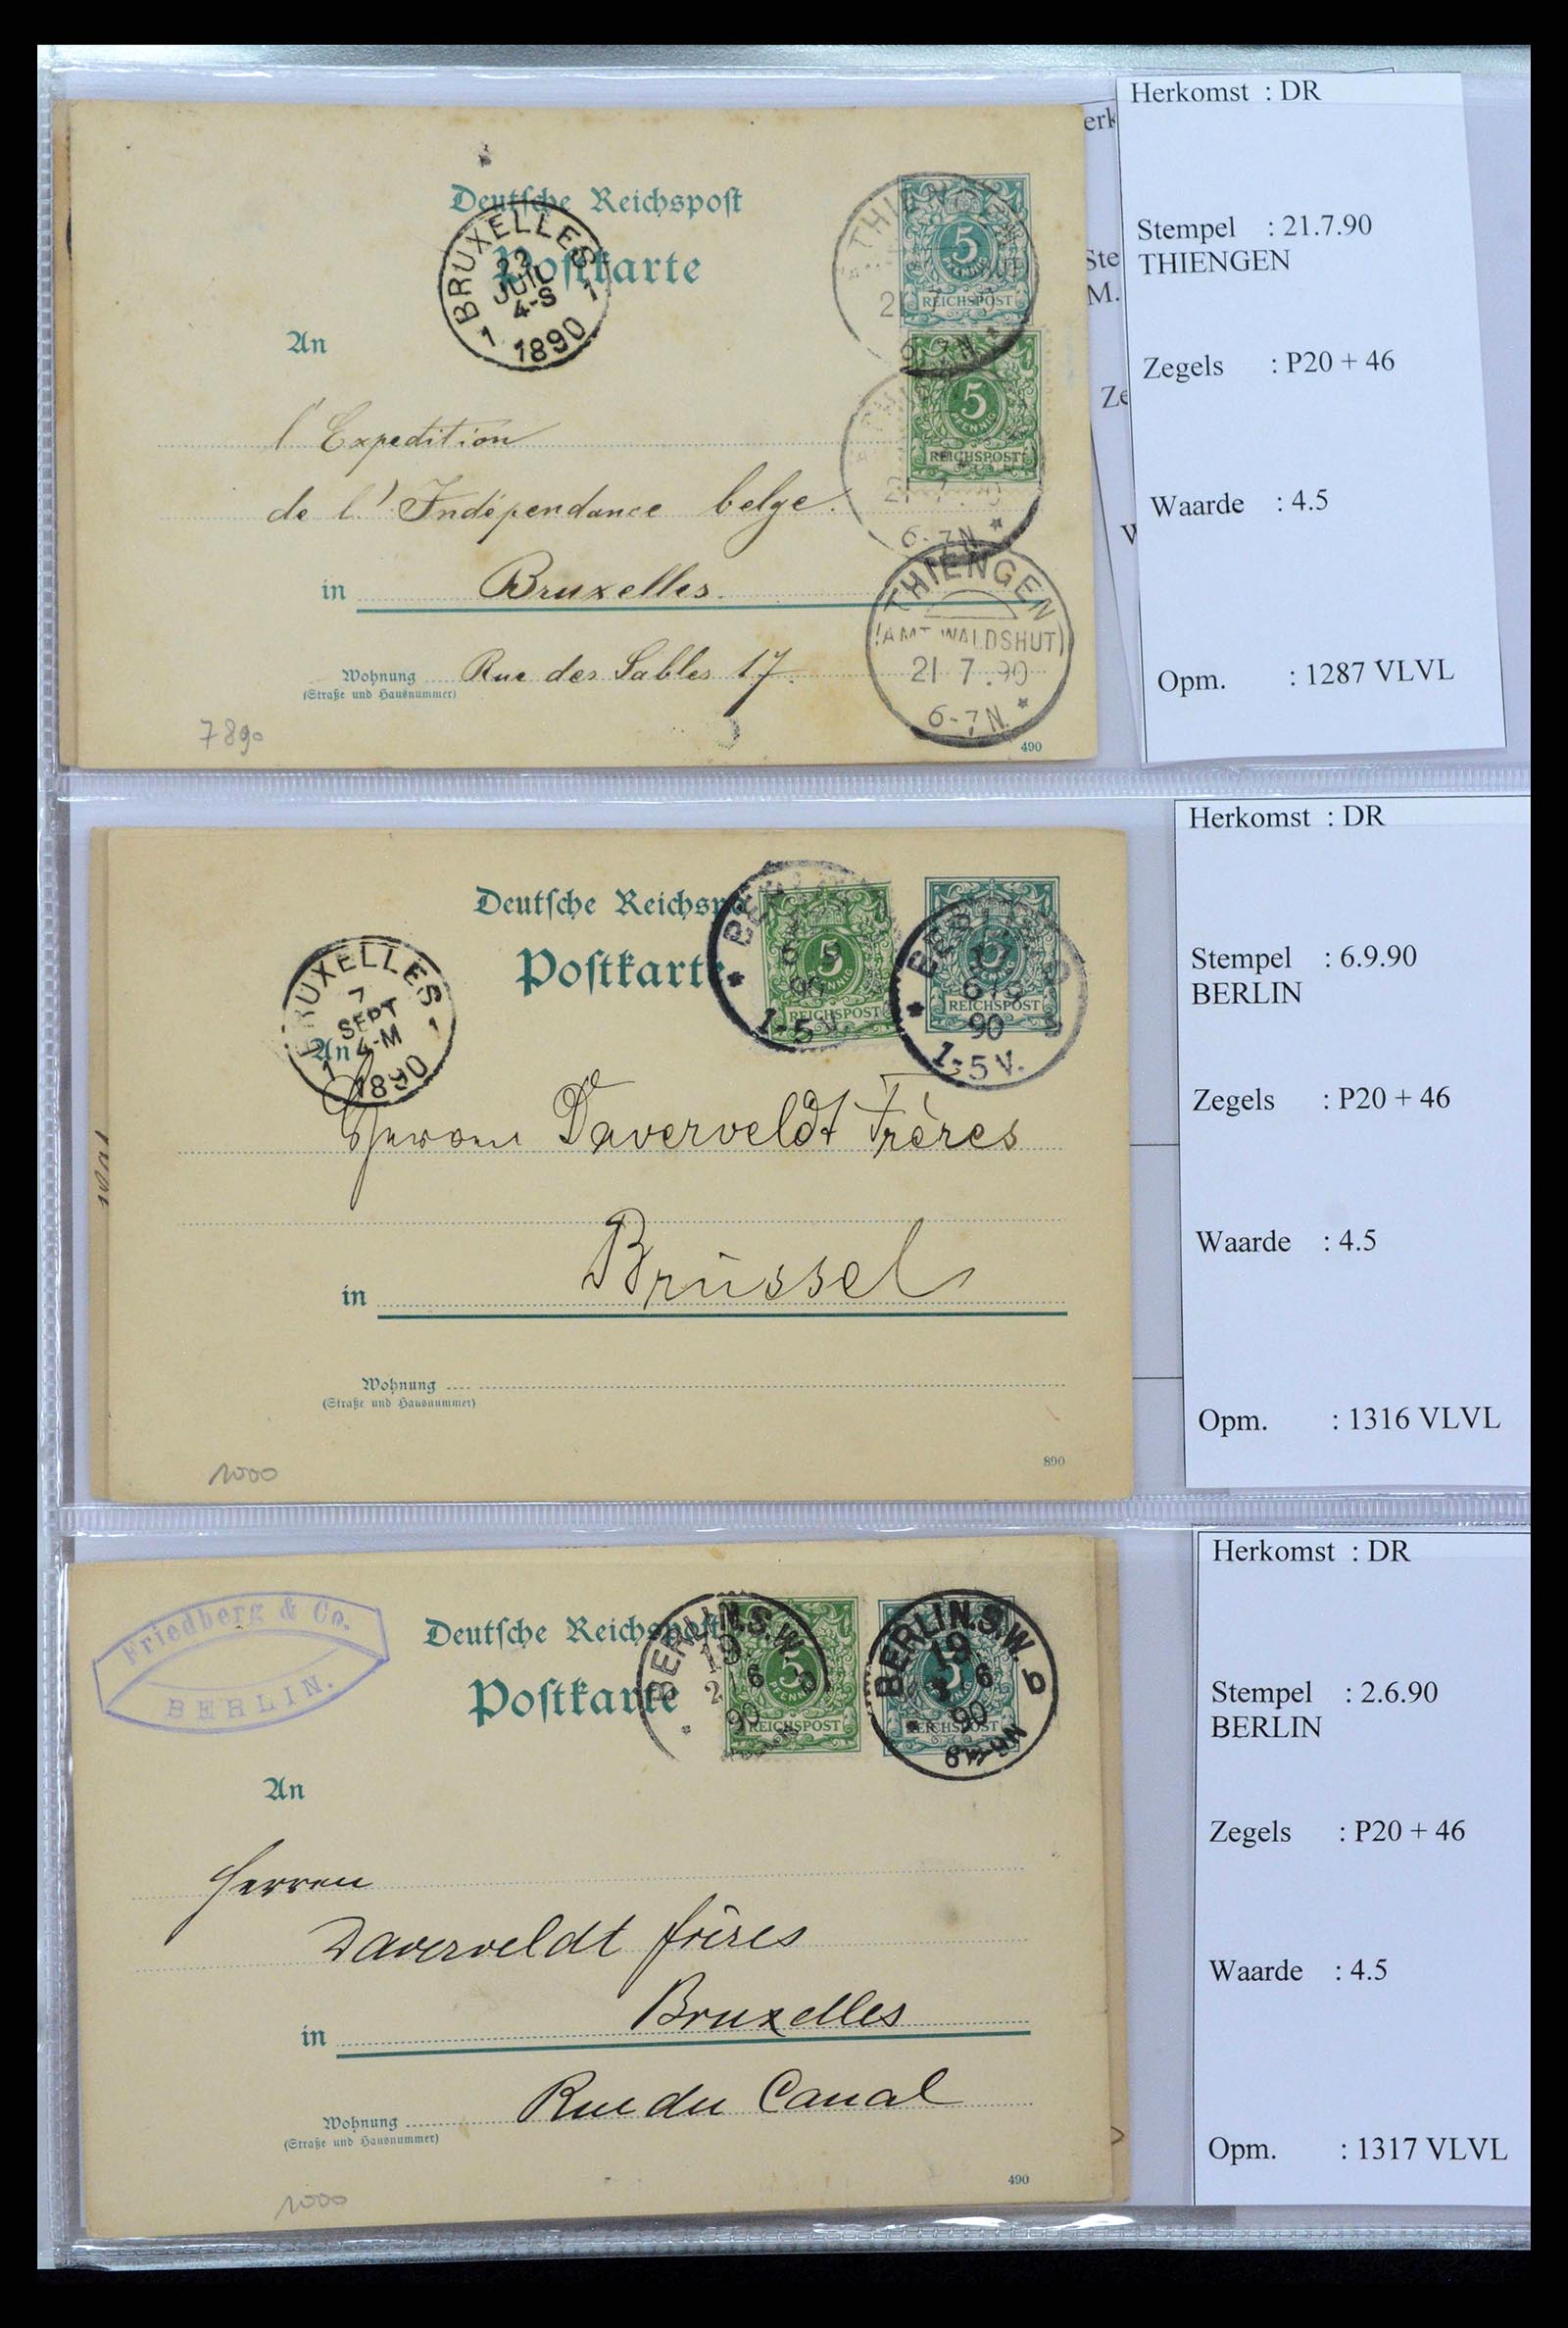 Deutsche Reichspost
Postkarte
BRUXELLES
22
JUIL
4-S
1 1
1890
5
PFENNIG
REICHSPOST
5
PFENNIG
REICHSPOST
21 7
6-7N
THIENGEN
(AMT WALDSHUT)
21 7.90
6-7N.
An
l'Expedition
de l'Indépendance belge.
in Bruxelles.
Wohnung Rue des Sables 17.
(Straße und Hausnummer)
7890
490
Herkomst : DR
Stempel : 21.7.90
THIENGEN
Zegels : P20 + 46
Waarde : 4.5
Opm. : 1287 VLVL
erk
Ste
M.
Ze
Deutsche Reichspo
Postkarte
BRUXELLES
7
SEPT
4-M
1 1
1890
5
PFENNIG
REICHSPOST
90
1-5V.
REICHSPOST
6 9
90
1-5V.
An
Daverveldt Frères
in Brüssel
Wohnung
(Straße und Hausnummer)
1000
890
Herkomst : DR
Stempel : 6.9.90
BERLIN
Zegels : P20 + 46
Waarde : 4.5
Opm. : 1316 VLVL
Friedberg & Co.
BERLIN.
Deutsche Reichspost
Postkarte
BERLIN.S.W.
19
2 6
90
b
5
PFENNIG
REICHSPOST
BERLIN.S.W.
19
6
90
b
REICHSPOST
An
Herren
Daverveldt frères
in Bruxelles
Wohnung Rue du Canal
(Straße und Hausnummer)
1000
490
Herkomst : DR
Stempel : 2.6.90
BERLIN
Zegels : P20 + 46
Waarde : 4.5
Opm. : 1317 VLVL